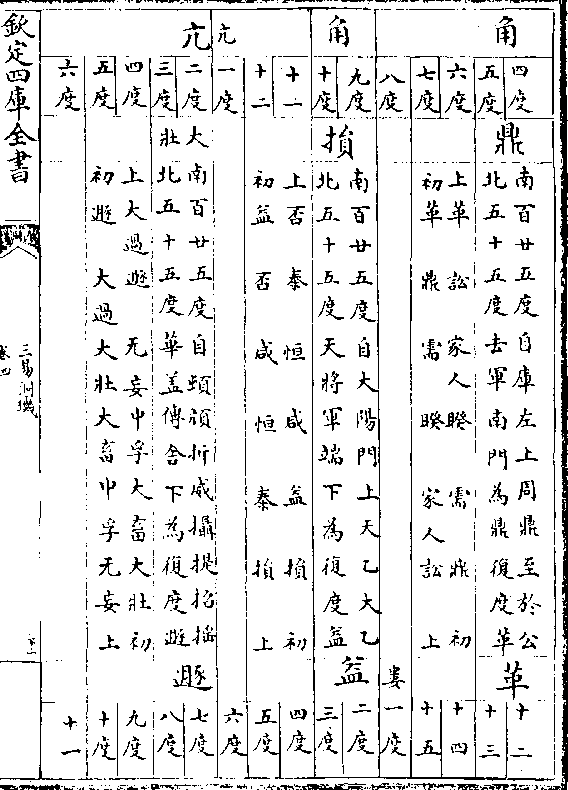 角
角
亢
亢
四度
五度
六度
七度
八度
九度
十度
十一
十二
一度
二度
三度
四度
五度
六度
鼎
損
大壯
南百廿五度自庫左上周鼎至於公
北五十五度去軍南門為鼎復度革
上革訟家人睽需鼎初
初革鼎需睽家人訟上
南百廿五度自大陽門上天乙大乙
北五十五度天將軍端下為復度益
上否泰恒咸益損初
初益否咸恒泰損上
南百廿五度自頓頑折威攝提招搖
北五十五度華盖傳舍下為復度遯
上大過遯无妄中孚大畜大壯初
初遯大過大壯大畜中孚无妄上
革
益
遯
十二
十三
十四
十五
婁一度
二度
三度
四度
五度
六度
七度
八度
九度
十度
十一
欽定四庫全書
三易洞璣
卷四